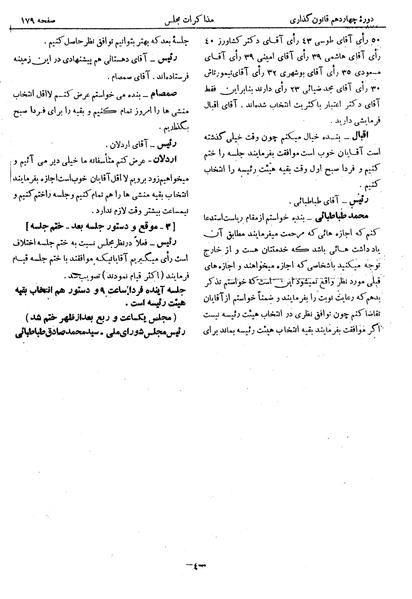 دورهٔ چهاردهم قانون‌گذاری
مذاکرات مجلس
صفحه ۱۷۹
۵۰ رأی آقای طوسی ۴۳ رأی آقای دکتر کشاورز ۴۰
رأی آقای هاشمی ۳۹ رأی آقای امینی ۳۹ رأی آقای
مسعودی ۳۵ رأی آقای بوشهری ۳۲ رأی آقای تیمورتاش
۳۰ رأی آقای مجد ضیائی ۲۳ رأی دارند بنابراین فقط
آقای دکتر اعتبار باکثریت انتخاب شده‌اند. آقای اقبال
فرمایشی دارید.
اقبال ـ بنده خیال میکنم چون وقت خیلی گذشته
است آقایان خوب است موافقت بفرمایند جلسه را ختم
کنیم و فردا صبح اول وقت بقیه هیئت رئیسه را انتخاب
کنیم.
رئیس ـ آقای طباطبائی.
محمد طباطبائی ـ بنده خواستم از مقام ریاست استدعا
کنم که اجازه هائی که مرحمت میفرمایند مطابق آن
یاد داشت هائی باشد که خدمتتان است و از خارج
توجه میکنید باشخاصی که اجازه میخواهند و اجازه‌های
قبلی مورد نظر واقع نمیشود این است که خواستم تذکر
بدهم که رعایت نوبت را بفرمایند و ضمناً خواستم از آقایان
تقاضا کنم چون توافق نظری در انتخاب هیئت رئیسه نیست
اگر موافقت بفرمایند بقیه انتخاب هیئت رئیسه بماند برای
جلسهٔ بعد که بهتر بتوانیم توافق نظر حاصل کنیم.
رئیس ـ آقای دهستانی هم پیشنهادی در این زمینه
فرستاده‌اند. آقای صمصام.
صمصام ـ بنده می خواستم عرض کنم لااقل انتخاب
منشی ها را امروز تمام کنیم و بقیه را برای فردا صبح
بگذاریم.
رئیس ـ آقای اردلان.
اردلان ـ عرض کنم متأسفانه ما خیلی دیر می آئیم و
میخواهیم زود برویم لا اقل آقایان خوب است اجازه بفرمایند
انتخاب بقیه منشی ها را هم تمام کنیم و جلسه را ختم کنیم و
نیمساعت بیشتر وقت لازم ندارد.
[ ۳ ـ موقع و دستور جلسه بعد ـ ختم جلسه ]
رئیس ـ فعلاً در نظر مجلس نسبت به ختم جلسه اختلاف
است رأی میگیریم آقایانیکه موافقند با ختم جلسه قیام
فرمایند ( اکثر قیام نمودند ) تصویب شد.
جلسه آینده فردا ساعت ۹ و دستور هم انتخاب بقیه
هیئت رئیسه است.
( مجلس یکساعت و ربع بعد از ظهر ختم شد )
رئیس مجلس شورای ملی ـ سید محمد صادق طباطبائی
ـ۴ـ